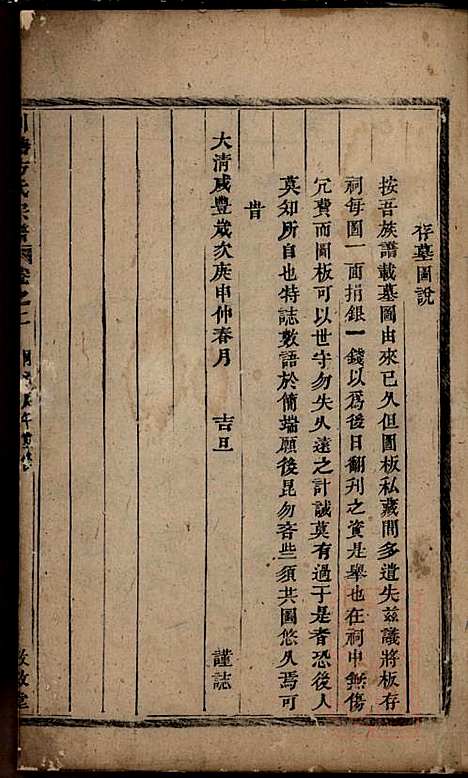 存墓圖說
按吾族譜載墓圖由來已久但圖板私藏間多遺失茲議將板存
祠每圖一面捐銀一錢以爲後日翻刊之資是舉也在祠中無傷
冗費而圖板可以世守勿失久遠之計誠莫有過于是者恐後人
莫知所自也特誌數語於簡端願後昆勿吝些須共圖悠久焉可
旹
大清咸豐歲次庚申仲春月 吉旦 謹誌
氏宗譜 卷之二
敦堂